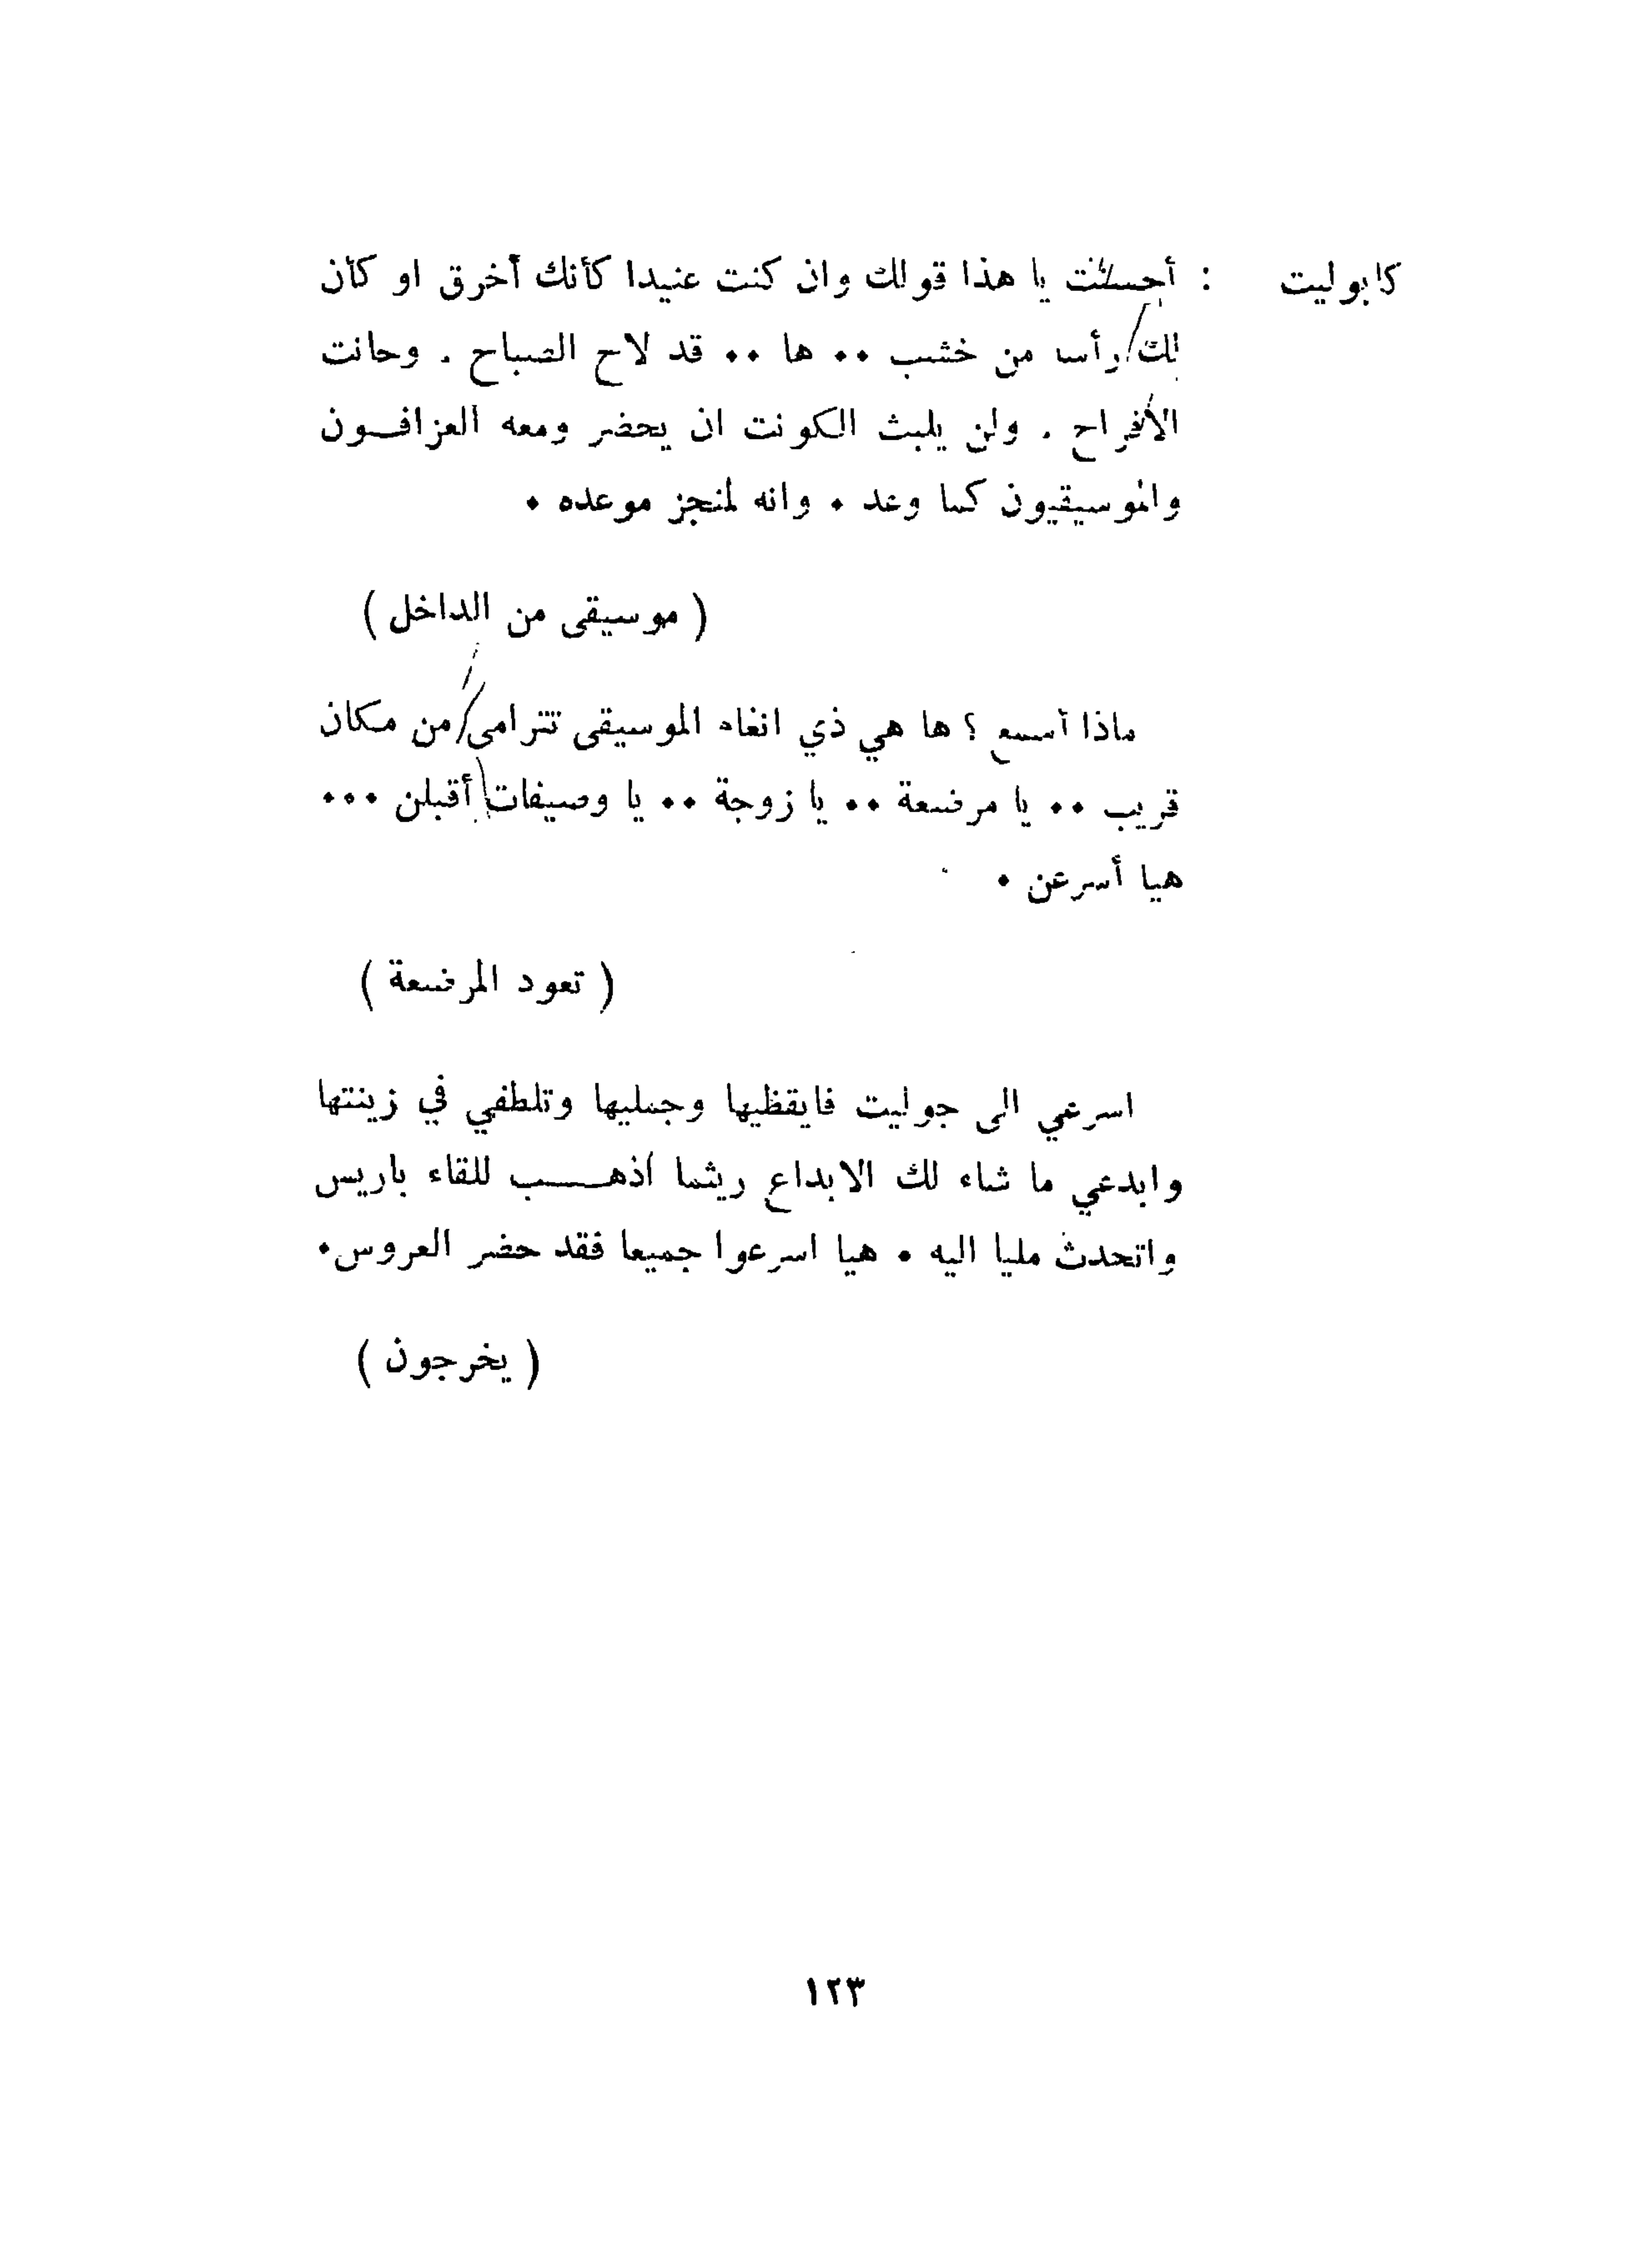 كابوليت : أحسنت يا هذا قولك وان كنت عنيدا كأنك أخرق او كأن
لك رأسا من خشب ٠٠ ها ٠٠ قد لاح الصباح . وحانت
الأفراح . ولن يلبث الكونت ان يحضر ومعه العزافــون
والموسيقيون كما وعد ٠ وانه لمنجز موعده ٠
( موسيقى من الداخل )
ماذا أسمع ؟ ها هي ذي انغام الموسيقى تترامى من مكان
قريب ٠٠ يا مرضعة ٠٠ يا زوجة ٠٠ يا وصيفات أقبلن ٠٠٠
هيا أسرعن ٠
( تعود المرضعة )
اسرعي الى جوليت فايقظيها وجمليها وتلطفي في زينتها
وابدعي ما شاء لك الابداع ريثما أذهـــب للقاء باريس
واتحدث مليا اليه ٠ هيا اسرعوا جميعا فقد حضر العروس٠
( يخرجون )
١٢٣